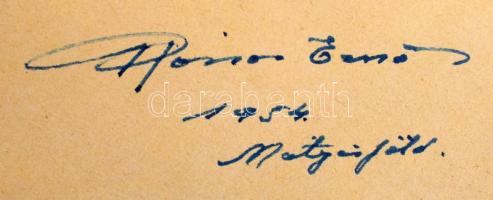 Ernő
1954.
Mátyásföld.
darabanth